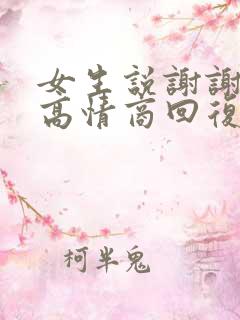 女生説謝謝
高情商回復
柯半鬼